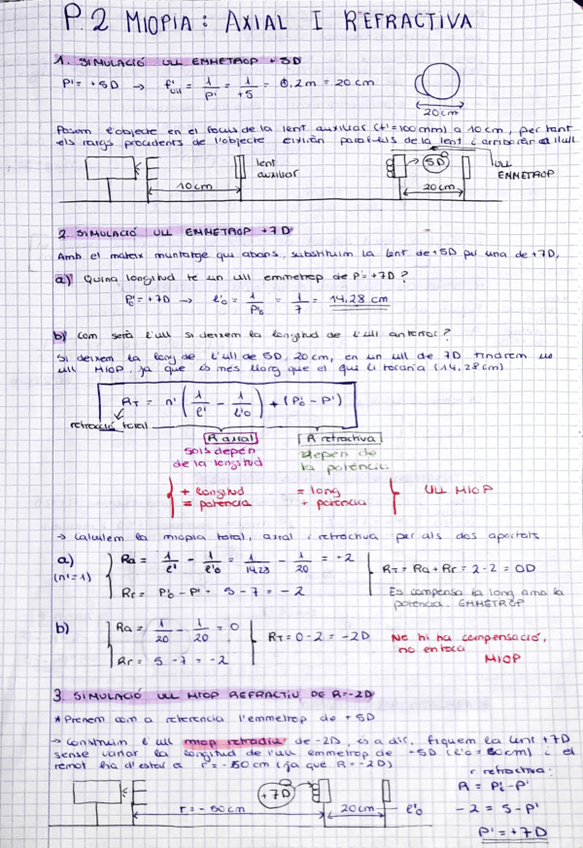 P.2 MIOPIA: AXIAL I REFRACTIVA
1. SIMULACIÓ ULL EMMETROP +5D
P'= +5D → f'ull = 1/P' = 1/+5 = 0,2m = 20 cm
20cm
Posem l'objecte en el focus de la lent auxiliar (f'=100mm) a 10cm, per tant
els raigs procedents de l'objecte exiliràn paral·lels de la lent i arribaràn a l'ull.
lent
auxiliar
10cm
5D
20cm
ULL
EMMETROP
2. SIMULACIÓ ULL EMMETROP +7D
Amb el mateix muntatge que abans, substituim la lent de +5D per una de +7D,
a) Quina longitud te un ull emmetrop de P'= +7D?
P'o = +7D → l'o = 1/P'o = 1/7 = 14,28 cm
b) Com serà l'ull si deixem la longitud de l'ull anterior?
Si deixem la long de l'ull de 5D, 20cm, en un ull de 7D tindrem un
ull MIOP, ja que és més llarg que el que li tocaria (14,28cm)
RT = n' (1/l' - 1/l'o) + (P'o - P')
refracció total
R axial
sols depén
de la longitud
R refractiva
depén de
la poténcia
+ longitud
= potencia
= long
+ potencia
ULL MIOP
→ Calculem la miopia total, axial i refractiva per als dos apartats
a)
(n'=1)
Ra = 1/l' - 1/l'o = 1/14,28 - 1/20 = +2
Rr = P'o - P' = 5 - 7 = -2
RT = Ra + Rr = 2-2 = 0D
Es compensa la long amb la
potencia. EMMETROP
b)
Ra = 1/20 - 1/20 = 0
Rr = 5 - 7 = -2
RT = 0-2 = -2D
No hi ha compensació,
no enfoca
MIOP
3. SIMULACIÓ ULL MIOP REFRACTIU DE R=-2D
* Prenem com a referència l'emmetrop de +5D
→ Construim l'ull miop refractiu de -2D, és a dir, fiquem la lent +7D
sense variar la longitud de l'ull emmetrop de +5D i el
remot ha d'estar a r = -50 cm (ja que R = -2D)
r = -50cm
+7D
20cm
l'o
r. refractiva:
R = P'o - P'
-2 = 5 - P'
P' = +7D